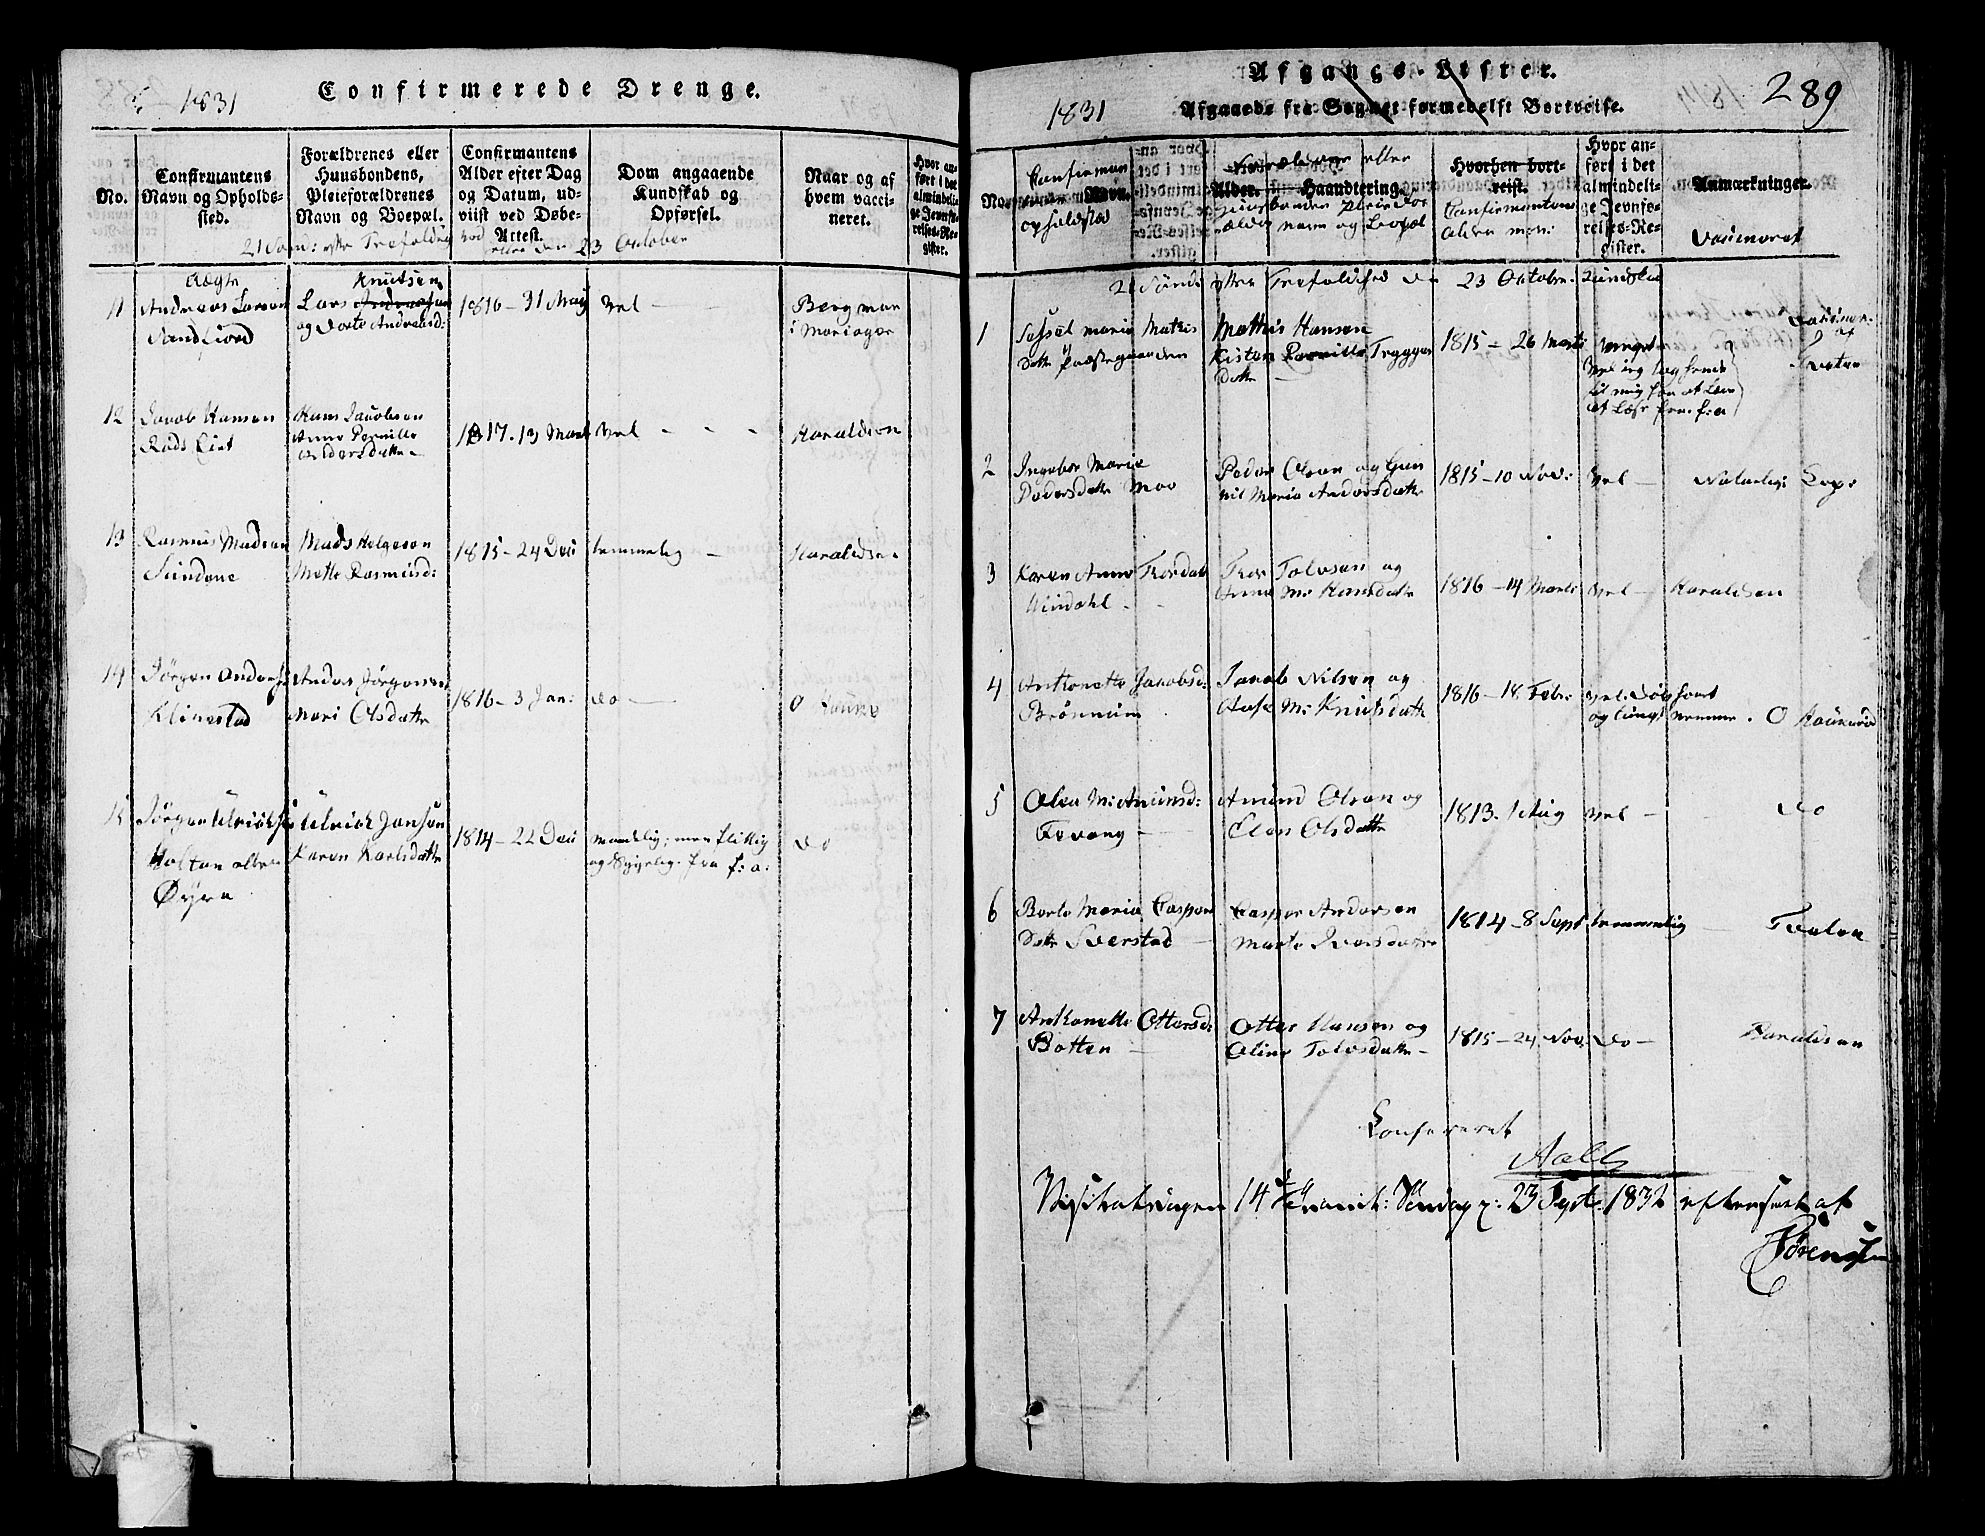 1831
Confirmerede Drenge.
No.
Confirmantens
Navn og Opholds-
sted.
Forældrenes eller
Huusbondens,
Pleieforældrenes
Navn og Boepæl.
Confirmantens
Alder efter Dag
og Datum, ud-
viist ved Døbe-
Attest.
Dom angaaende
Kundskab og
Opførsel.
Naar og af
hvem vacci-
neret.
Hvor an-
ført i det
almindeli-
ge Jevnfø-
relses-Re-
gister.
21 Sønd: efter Trefoldighed 23 October
11
Ægte
Andreas Larsen
Sandfiord
Knutsen
Lars
og Dorte Andreasd:
1816 - 31 May
vel
Bergman
i Mariager
12
Jacob Hansen
Hans Jacobsen
Anne Pernille
1817. 13 Marti
vel - - -
Haraldsen
13
Rasmus Madsen
Sundene
Mads Helgesen
Mette Rasmusd:
1815 - 24 Dec
temmelig -
Haraldsen
14
Jørgen Anders:
Klinestad
Anders Jørgensen
Mari Olsdatter
1816 - 3 Jan:
do -
15
Jørgen Ulrichsen
Holtan eller
Øyra
Ulrich Jansen
Karen Karlsdatter
1814 - 22 Dec
maadelig; men flittig
og sygelig. fra f: a:
do
1831
Afgangs-Lister.
Afgaaede fra Sognet formedelst Bortreise.
289
No.
Confirman
Navn.
opholdsted
Forældrene eller
Alder. Haandtering.
navn og boepæl
Hvorhen bort-
reist.
Confirmantens
alder men:
Hvor an-
ført i det
almindeli-
ge Jevnfø-
relses-Re-
gister.
Anmærkninger.
Vaccineret
21 Sønd: efter Trefoldighed d. 23 Oktobr: Kundskab
1
Sissel Marie Mathis
Datter Præstegaarden
Mathis Hansen
Kisten Pernille Trygges
datter -
1815 - 26 Marti
meget
vel jeg tog hende
til mig for at lære
at læse fra f: a
2
Ingebor Marie
Pedersdatter Moe
Peder Olsen og Gun
nil Maria Andersdatter
1815 - 10 Nov:
vel -
Naturlig: Kop:
3
Karen Anne Thordatter
Thor Tolvsen og
Anne M: Hansdatter
1816 - 14 Marti
vel -
Haraldsen
4
Anthonette Jacobsd:
Brønnum
Jacob Nilsen og
Aase M: Knutsdatter
1816 - 18 Febr:
vel: Døv
og tung nemme.
5
Olea M: Amunsd:
Fevang -
Amund Olsen og
Elen Olsdatter
1813. 1 Aug
vel -
do
6
Berte Maria Casper
datter Sverstad -
Casper Andersen
Marte Iversdatter
1814 - 8 Sept
temmelig
7
Anthonette Ottersd:
Botten -
Otter Hansen og
Oline Tolvsdatter -
1815 - 24 Nov:
do -
Haraldsen
Confereret
Aall
Visitatsdagen 14 Trinit: Søndag p: 23 Sept: 1832 efterseet af
Sörensen